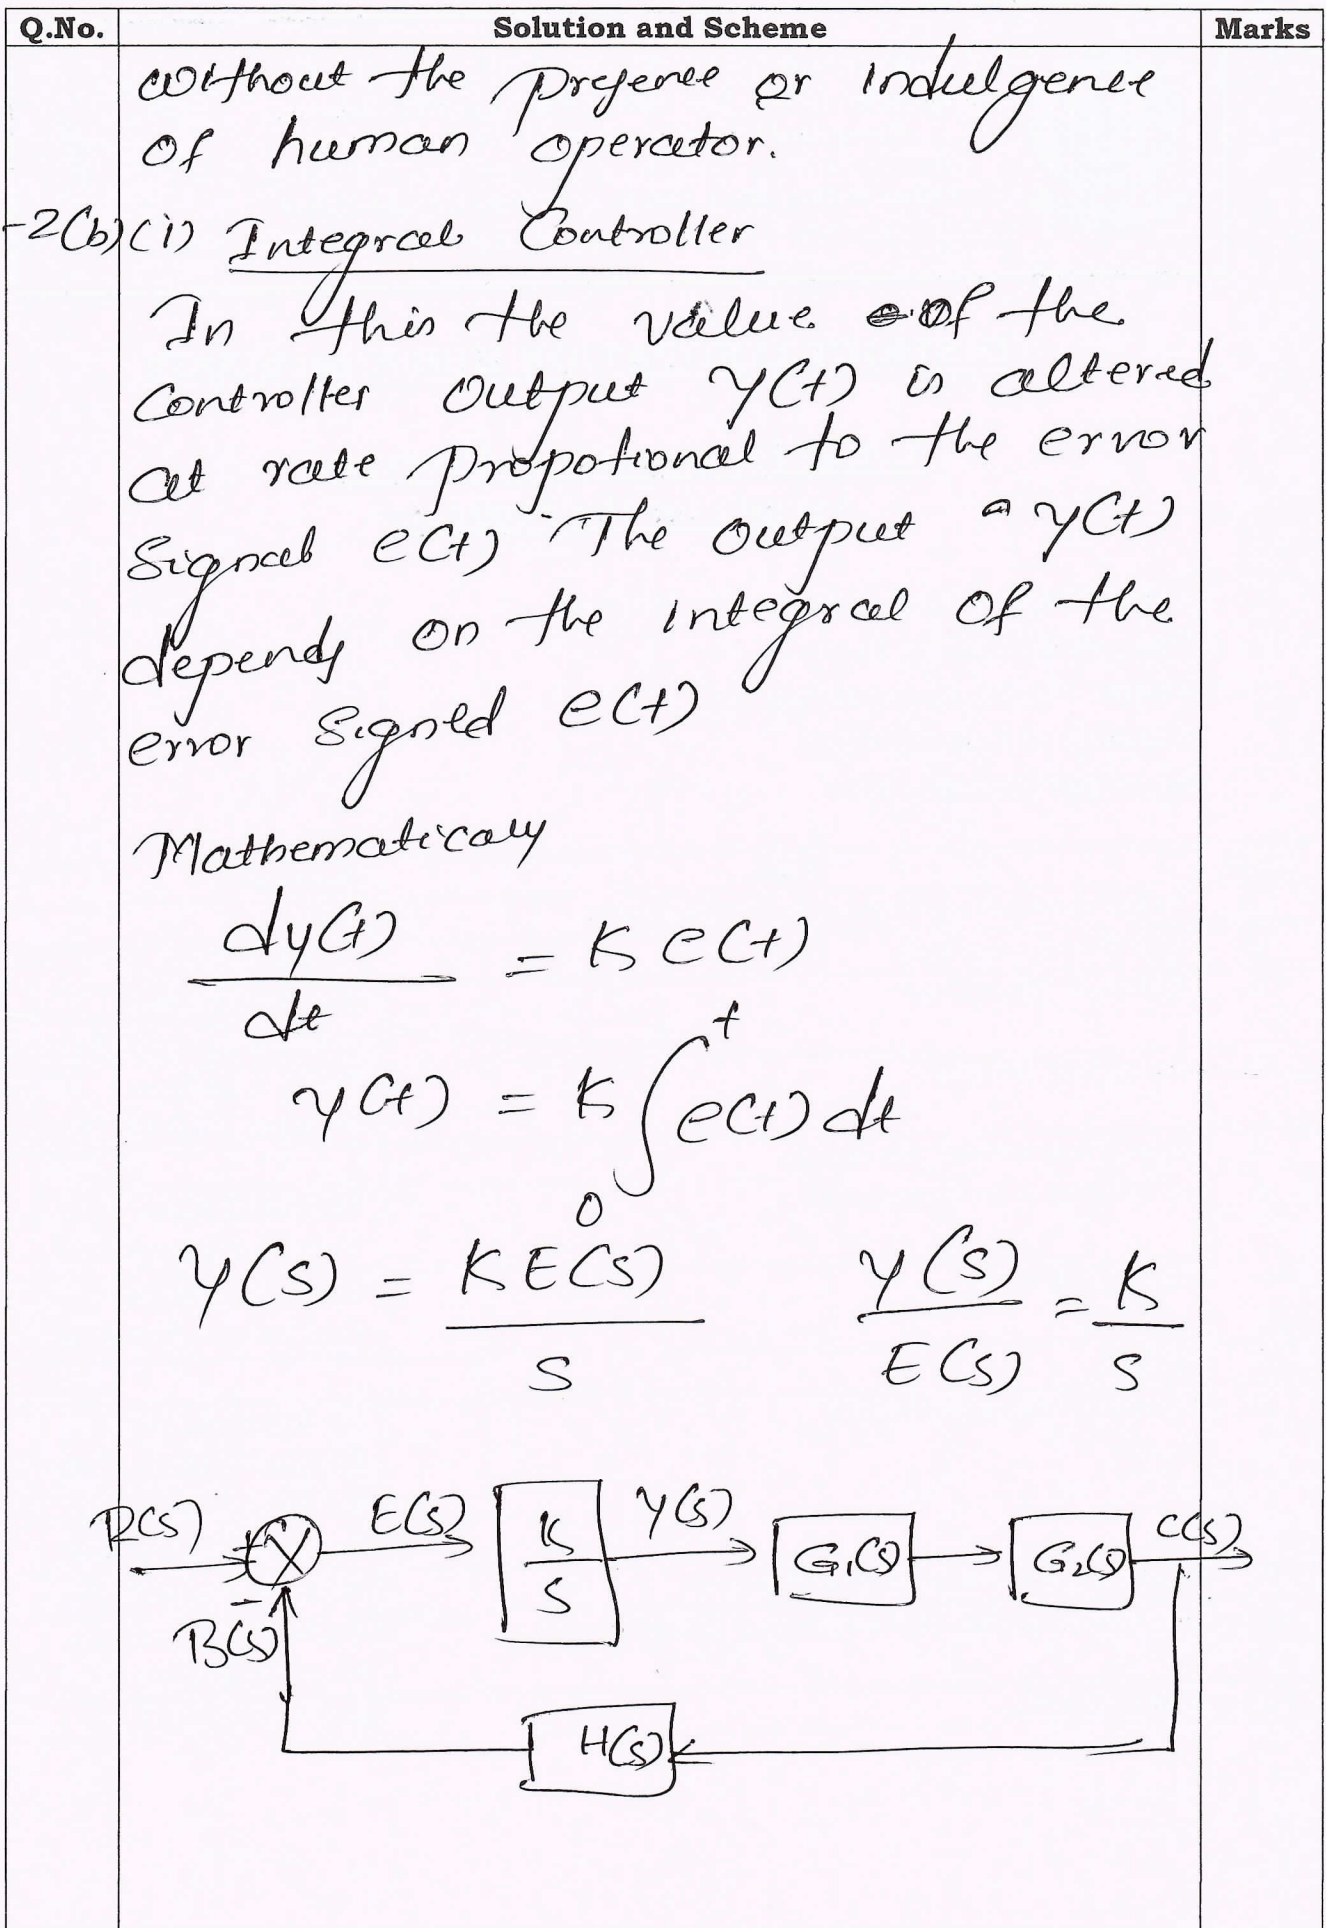 Q.No. Solution and Scheme Marks
without the presence or indulgence
of human operator.
-2(b)(i) Integral Controller
In this the value of the
Controller Output y(t) is altered
at rate propotional to the error
Signal e(t) The output y(t)
depends on the integral of the
error Signal e(t)
Mathematicaly
dy(t)/dt = K e(t)
y(t) = K ∫₀ᵗ e(t) dt
Y(S) = K E(S)/S Y(S)/E(S) = K/S
R(S) + E(S) K/S Y(S) G₁(S) G₂(S) C(S)
-
B(S)
H(S)